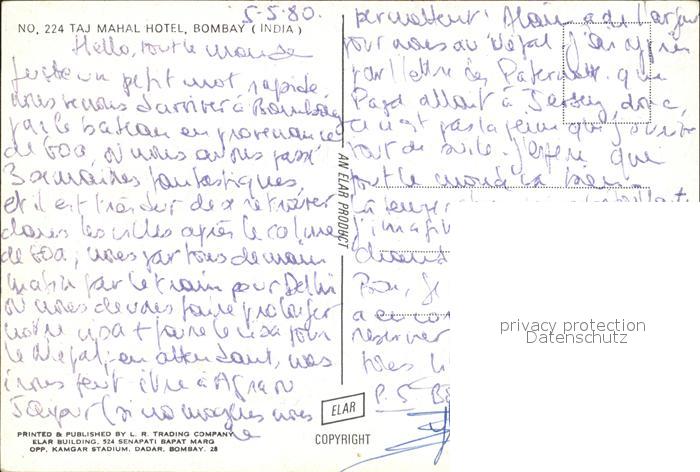 5-5-80.
NO. 224 TAJ MAHAL HOTEL, BOMBAY (INDIA)
Hello, tout le monde
Juste un petit mot rapide,
nous venons d'arriver à Bombay
par le bateau en provenance
de Goa, où nous avons passé
3 semaines fantastiques,
et il est très dur de se retrouver
dans les villes après le calme
de Goa; nous partons demain
matin par le train pour Delhi
où nous devrons faire prolonger
notre visa + faire le visa pour
le Népal; en attendant, nous
irons peut être à Agra ou
Jaipur (si nos moyens nous
le
permettent! Alain a de l'argent
pour nous au Népal j'ai appris
par lettre des que
allait à Jersey, donc,
ce n'est pas la peine que j'écrive
tout de suite. J'espère que
tout le monde va bien
j'imagi
Bon, je
a
reserver
P.S
AN ELAR PRODUCT
ELAR
COPYRIGHT
PRINTED & PUBLISHED BY L. R. TRADING COMPANY
ELAR BUILDING, 524 SENAPATI BAPAT MARG
OPP. KAMGAR STADIUM, DADAR, BOMBAY. 28
privacy protection
Datenschutz